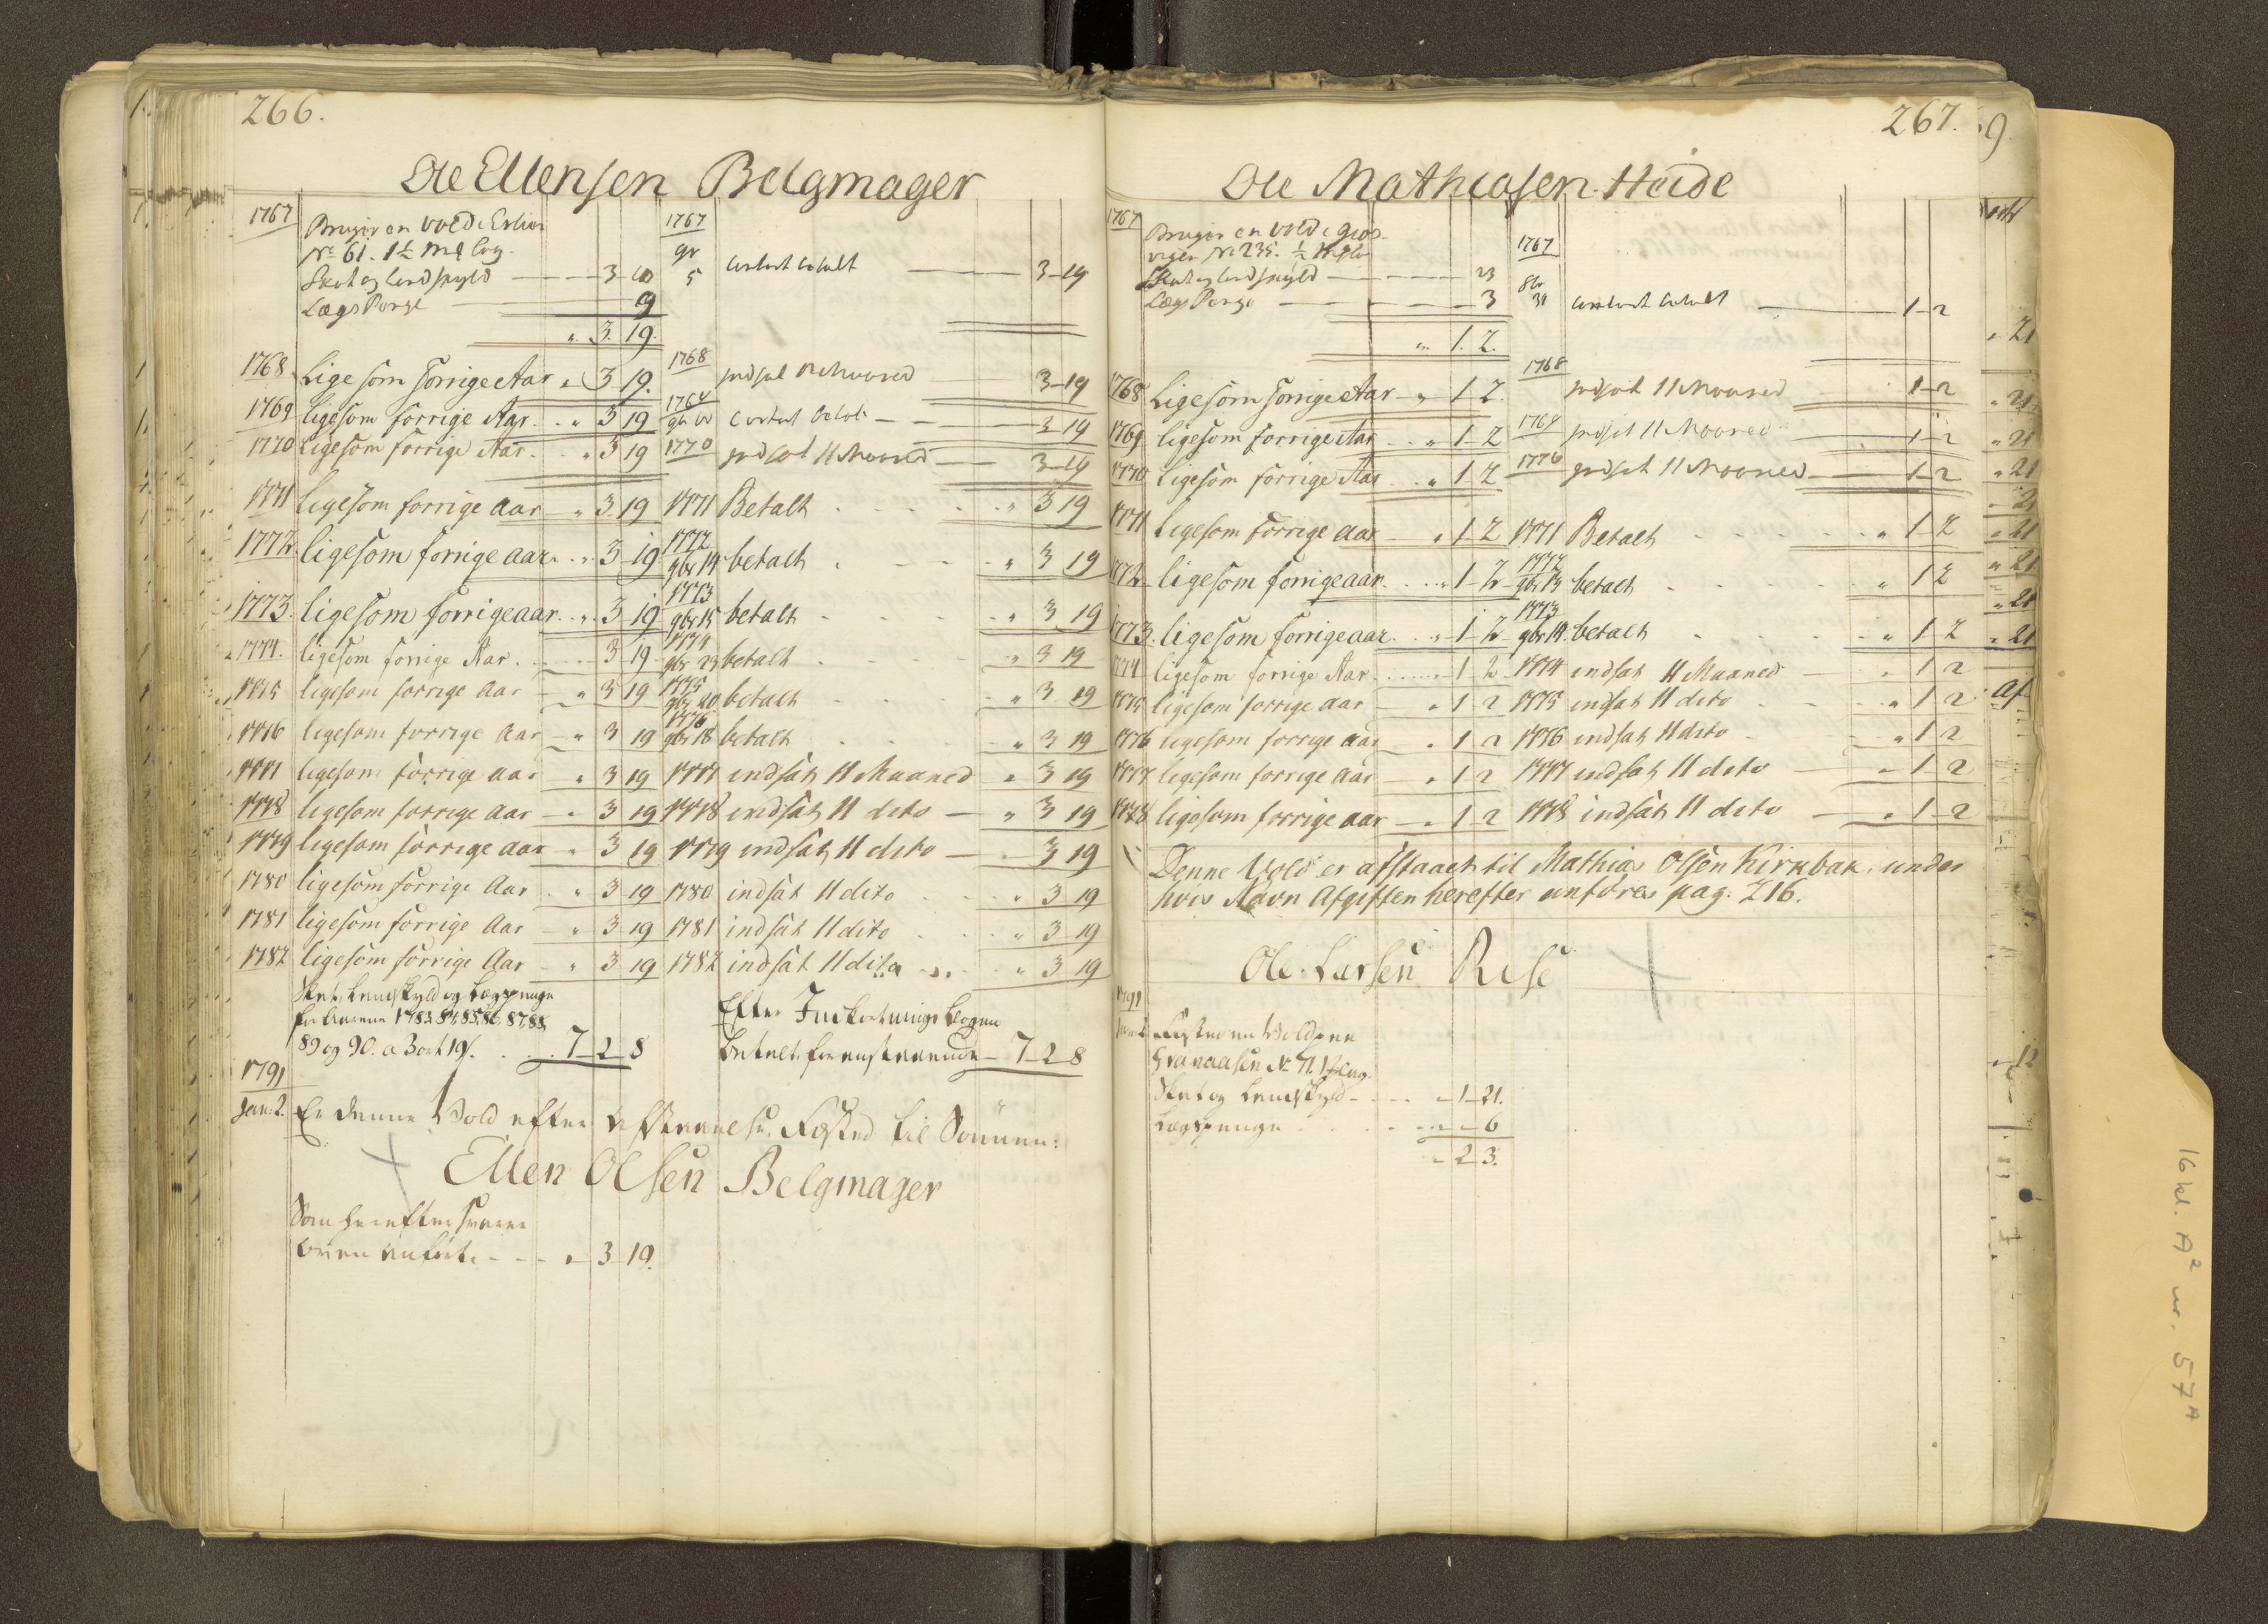 266.
Ole Ellensen Belgmager
1767 Bruger en Vold i
No 61. 1½ Mæl
Skat og landskyld — 3 10 1767 9br 5 Contant betalt — 3 19
Lægs Penge — 9
„ 3. 19.
1768 Lige som forrige Aar „ 3 19. 1768 indsat 11 Maaned 3 19
1769 ligesom forrige Aar . . „ 3 19 1769 Contant betalt — 3 19
1770 ligesom forrige Aar . „ 3 19 1770 indsat 11 Maaned — 3 19
1771 ligesom forrige aar — „ 3 19 1771 Betalt . . . „ 3 19
1772 ligesom forrige aar . . „ 3 19 1772 9br 14 betalt . . . „ 3 19
1773. ligesom forrige aar . . „ 3 19 1773 9br 15 betalt . . . „ 3 19
1774. ligesom forrige Aar . . . 3 19 1774 9br 23 betalt . . . „ 3 19
1775 ligesom forrige aar — „ 3 19 1775 9br 20 betalt . . . „ 3 19
1776 ligesom forrige aar — „ 3 19 1776 9br 18 betalt . . . „ 3 19
1777 ligesom forrige aar „ 3 19 1777 indsat 11 Maaned „ 3 19
1778 ligesom forrige aar — „ 3 19 1778 indsat 11 dito — „ 3 19
1779 ligesom forrige aar „ 3 19 1779 indsat 11 dito — „ 3 19
1780 ligesom forrige Aar . „ 3 19 1780 indsat 11 dito . . „ 3 19
1781 ligesom forrige Aar — „ 3 19 1781 indsat 11 dito . . „ 3 19
1782 ligesom forrige Aar — „ 3 19 1782 indsat 11 dito . . „ 3 19
Skat, Landskyld og Lægspenge
for Aarene 1783, 84, 85, 86, 87, 88,
89 og 90. a 3 ort 19 s. . . . 7 2 8
Efter Indkortnings bogen
betalt for anstaaende — 7 2 8
1791
Jan: 2. Er denne Vold efter Afstaaelse Fæsted til Sønnen:
Ellen Olsen Belgmager
Som herefter svarer
oven anførte - - - „ 3 19.
267.
Ole Mathiasen Heide
1767 Bruger en Vold i Grøs-
vigen No 235. ½
Skat og landskyld — 23 1767 8br 31 Contant betalt — 1 2
Lægs Penge — 3
„ 1. 2.
1768 Ligesom forrige Aar „ 1 2. 1768 indsat 11 Maaned 1 2
1769 ligesom forrige Aar . . „ 1 2 1769 indsat 11 Maaned 1 2
1770 ligesom forrige Aar . . „ 1 2 1770 indsat 11 Maaned — 1 2
1771 ligesom forrige aar — „ 1 2 1771 Betalt . . . „ 1 2
1772 ligesom forrige aar . . . „ 1 2 1772 9br 13 betalt . . . „ 1 2
1773. ligesom forrige aar . . „ 1 2 1773 9br 14. betalt . . . „ 1 2
1774 ligesom forrige Aar . . . . „ 1 2 1774 indsat 11 Maaned — „ 1 2
1775 ligesom forrige aar — „ 1 2 1775 indsat 11 dito . . „ 1 2
1776 ligesom forrige aar — „ 1 2 1776 indsat 11 dito — „ 1 2
1777 ligesom forrige aar — „ 1 2 1777 indsat 11 dito — „ 1 2
1778 ligesom forrige aar — „ 1 2 1778 indsat 11 dito — „ 1 2
Denne Vold er afstaaet til Mathias Olsen Kirkbak, under
hvis Navn Afgiften herefter anføres pag: 216.
Ole Larsen Rise
1791
Fæstet en Vold paa
Granaasen No 71.
Skat og Landskyld - . . . „ 1 21.
Lægspenge . . . . „ „ 6
„ 2 3.
16 kl. A² nr. 57ᴬ